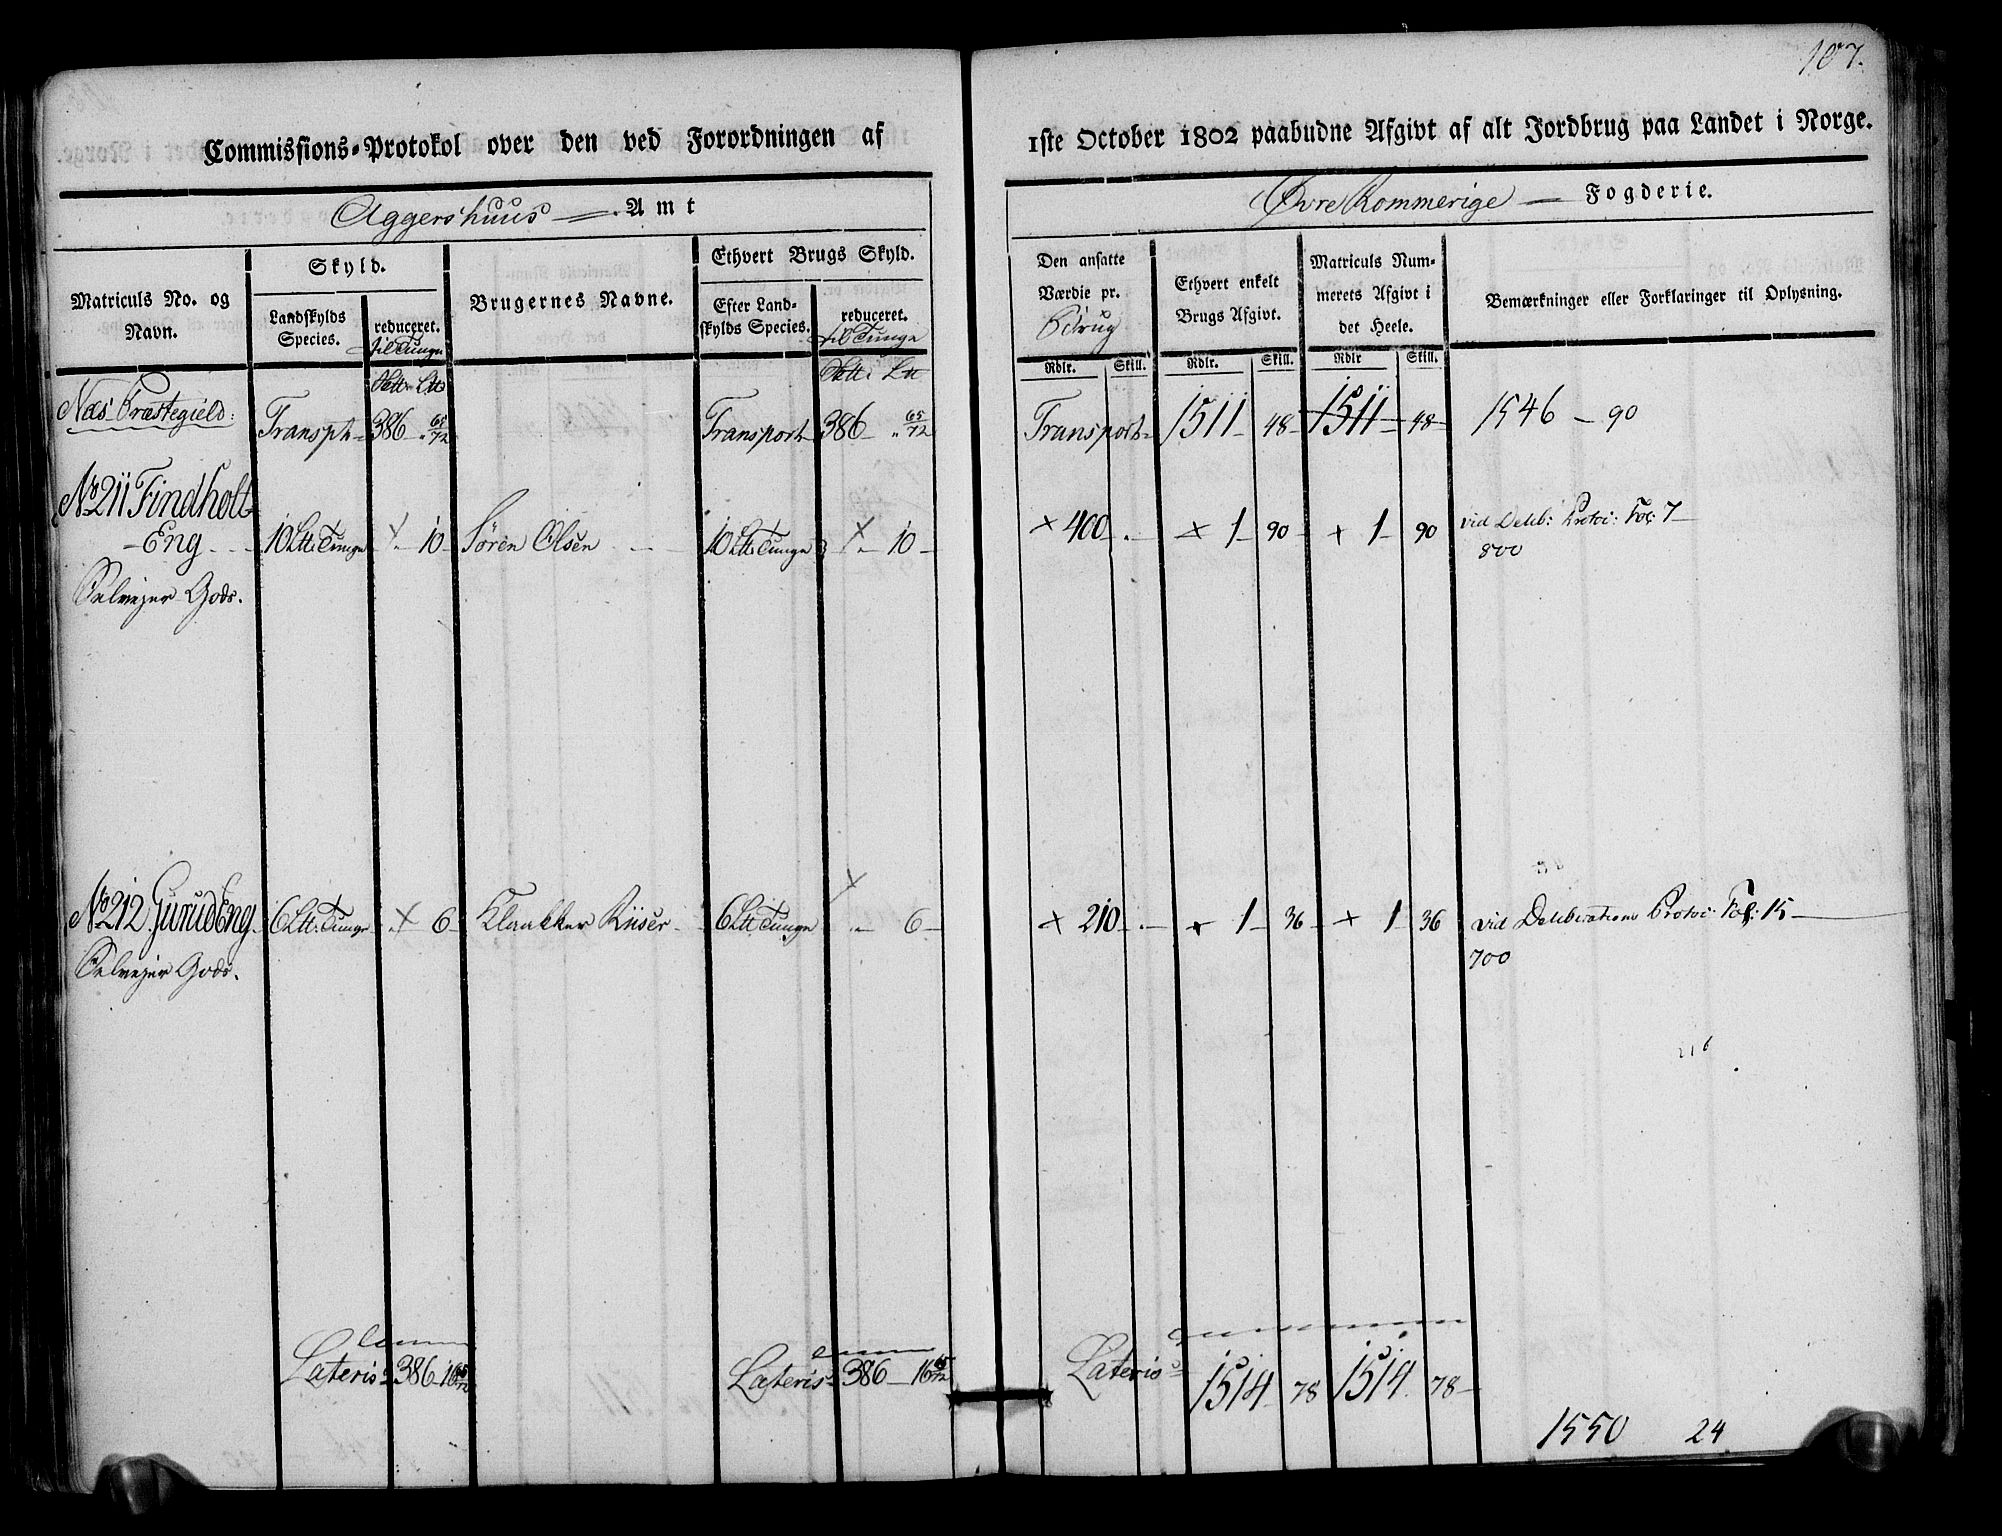 107.
Commissions-Protokol over den ved Forordningen af 1ste October 1802 paabudne Afgivt af alt Jordbrug paa Landet i Norge.
Aggershuus — Amt
Øvre Rommerige — Fogderie.
Matriculs No. og Navn.
Skyld.
Landskylds Species.
reduceret.
til Tunge
Brugernes Navne.
Ethvert Brugs Skyld.
Efter Landskylds Species.
reduceret.
til Tunge
Den ansatte Værdie pr.
Ethvert enkelt Brugs Afgivt.
Matriculs Nummerets Afgivt i det Heele.
Bemærkninger eller Forklaringer til Oplysning.
Rdlr. Skill. Rdlr. Skill. Rdlr Skill.
Næs Præstegield: Transpt 386 - " 65/72 Transport 386 - " 65/72 Transport 1511 - 48 - 1511 - 48 - 1546 - 90
No 211 Findholt
- Eng - - 10 Ltt: Tunge × " 10 - Søren Olsen 10 Ltt: Tunge × " 10 - × 400 - . - × 1 - 90 - + 1 - 90 vid Delib: Protoc: Fol: 7 -
800
Selvejer Gods.
No 212. Gurud Eng. 6 Ltt: Tunge × 6 - Klaukker Riiser - 6 Ltt Tunge × " 6 - × 210 - . - × 1 - 36 - × 1 - 36 vid Deliberations Protoc: Fol: 15 -
700
Selvejer Gods.
216
Lateris 386 - 16 65/72 Lateris 386 - 16 65/72 Lateris 1514 - 78 1514. 78 -
1550 24